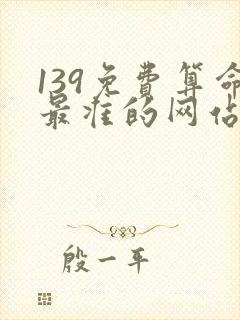 139免费算命
最准的网站
殷一平